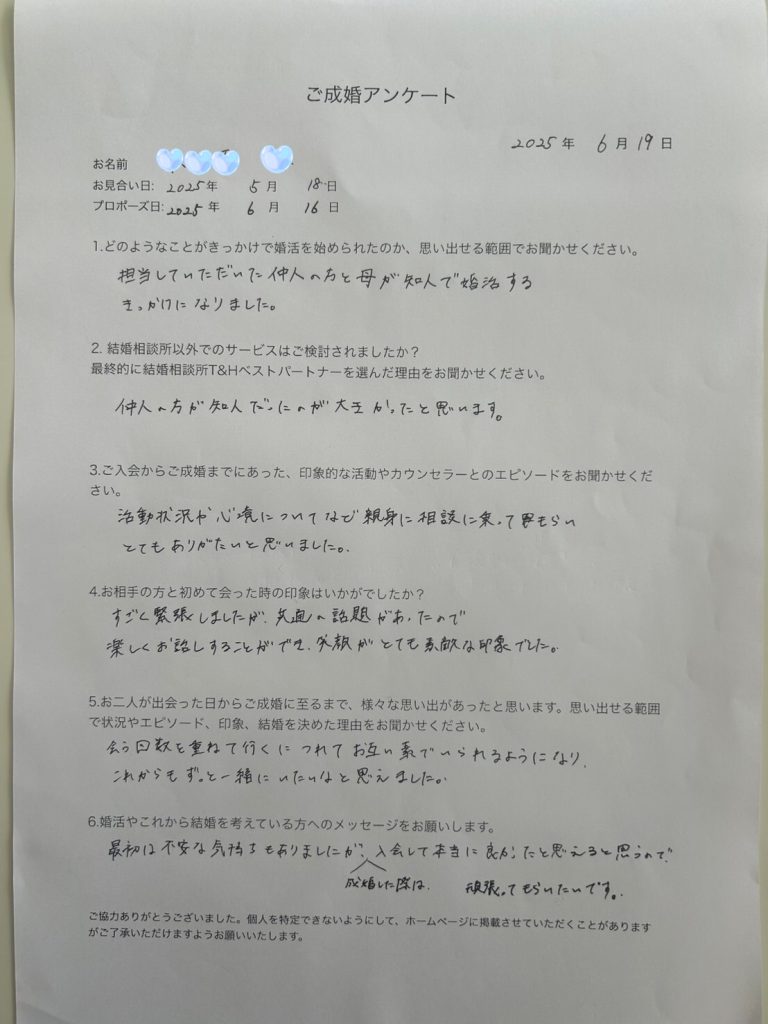 ご成婚アンケート
2025年 6月19日
お名前
お見合い日: 2025年 5月 18日
プロポーズ日: 2025年 6月 16日
1.どのようなことがきっかけで婚活を始められたのか、思い出せる範囲でお聞かせください。
担当していただいた仲人の方と母が知人で婚活する
きっかけになりました。
2. 結婚相談所以外でのサービスはご検討されましたか？
最終的に結婚相談所T&Hベストパートナーを選んだ理由をお聞かせください。
仲人の方が知人だったのが大きかったと思います。
3.ご入会からご成婚までにあった、印象的な活動やカウンセラーとのエピソードをお聞かせくだ
さい。
活動状況や心境についてなど親身に相談に乗ってもらい
とてもありがたいと思いました。
4.お相手の方と初めて会った時の印象はいかがでしたか？
すごく緊張しましたが、共通の話題があったので
楽しくお話しすることができ、笑顔がとても素敵な印象でした。
5.お二人が出会った日からご成婚に至るまで、様々な思い出があったと思います。思い出せる範囲
で状況やエピソード、印象、結婚を決めた理由をお聞かせください。
会う回数を重ねて行くにつれてお互い素でいられるようになり、
これからもずっと一緒にいたいなと思えました。
6.婚活やこれから結婚を考えている方へのメッセージをお願いします。
最初は不安な気持ちもありましたが、入会して本当に良かったと思えると思うので、
成婚した際は、 頑張ってもらいたいです。
ご協力ありがとうございました。個人を特定できないようにして、ホームページに掲載させていただくことがあります
がご了承いただけますようお願いいたします。